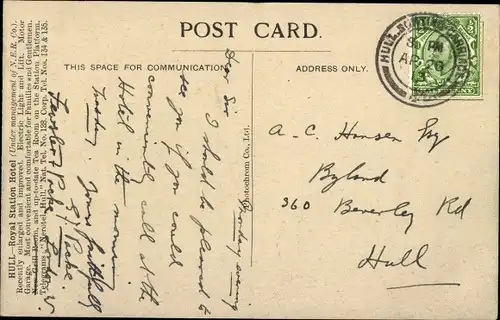 POST CARD.
THIS SPACE FOR COMMUNICATION
ADDRESS ONLY.
HULL—Royal Station Hotel (Under management of N.E.R. Co.).
Recently enlarged and improved. Electric Light and Lift. Motor
Garage. Most convenient and comfortable for Families and Gentlemen.
New Grill Room, and up-to-date Tea Room on the Station Platform.
Telegrams, "Nerotel, Hull." Nat. Tel. No. 123. Corp. Tel. Nos. 134 & 135.
Photochrom Co., Ltd.
Monday evening
Dear Sir
I should be pleased to
see you if you could
conveniently call at the
Hotel in the morning
Tuesday.
Yours faithfully
HULL
AP 29
A-C- Hansen Esq
Byland
360 Beverley Rd
Hull